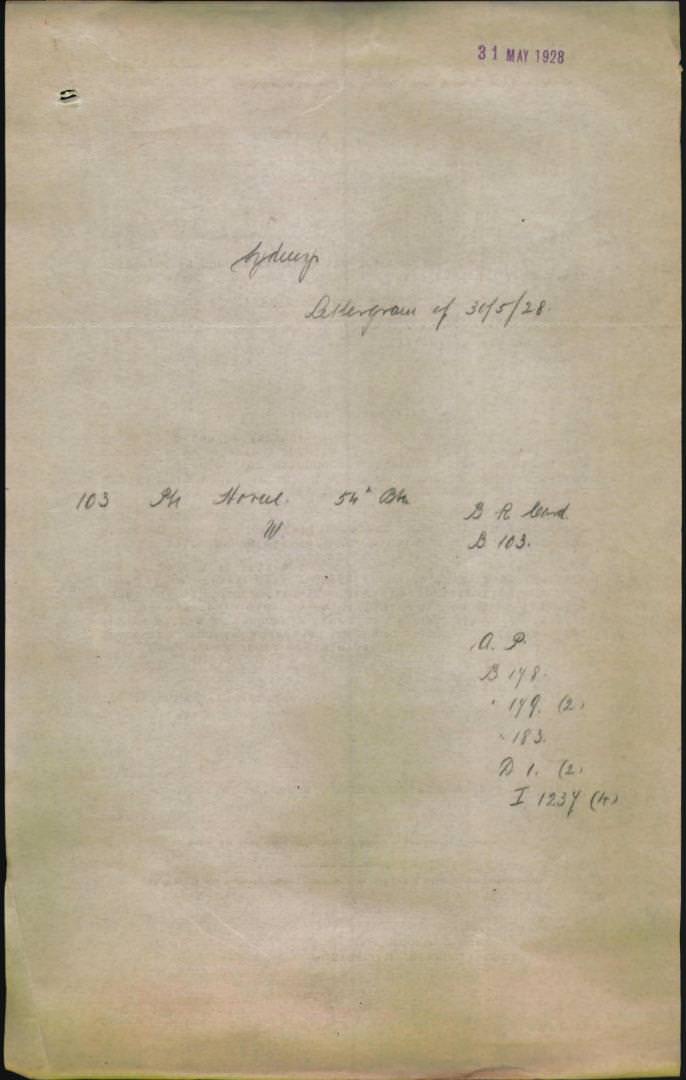 31 MAY 1928
Sydney
Lettergram of 30/5/28.
103 Pte 54th Btn
W.
B R Card.
B 103.
A. P.
B 178.
" 179. (2)
" 183.
D 1. (2)
I 1237 (4)